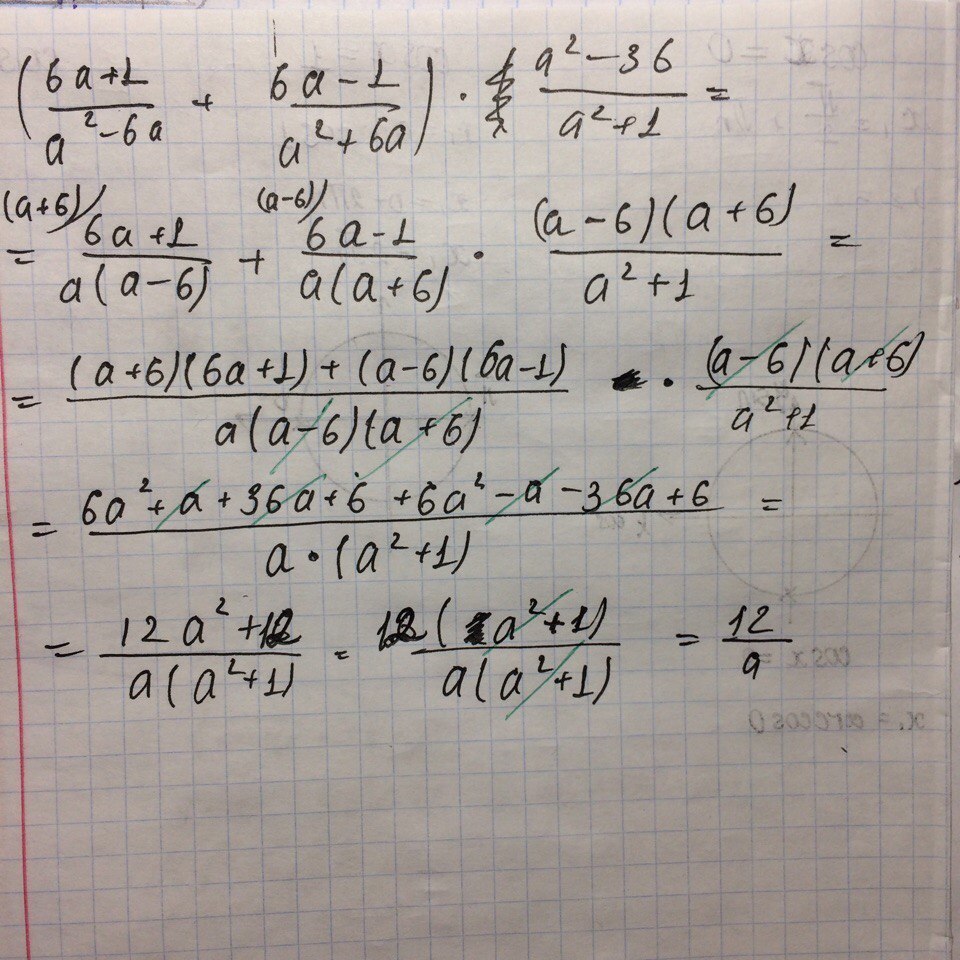 (6a+1 / a²-6a + 6a-1 / a²+6a) · a²-36 / a²+1 =
= (a+6) 6a+1 / a(a-6) + (a-6) 6a-1 / a(a+6) · (a-6)(a+6) / a²+1 =
= (a+6)(6a+1)+(a-6)(6a-1) / a(a-6)(a+6) · (a-6)(a+6) / a²+1
= 6a²+a+36a+6+6a²-a-36a+6 / a·(a²+1) =
= 12a²+12 / a(a²+1) = 12(a²+1) / a(a²+1) = 12 / a